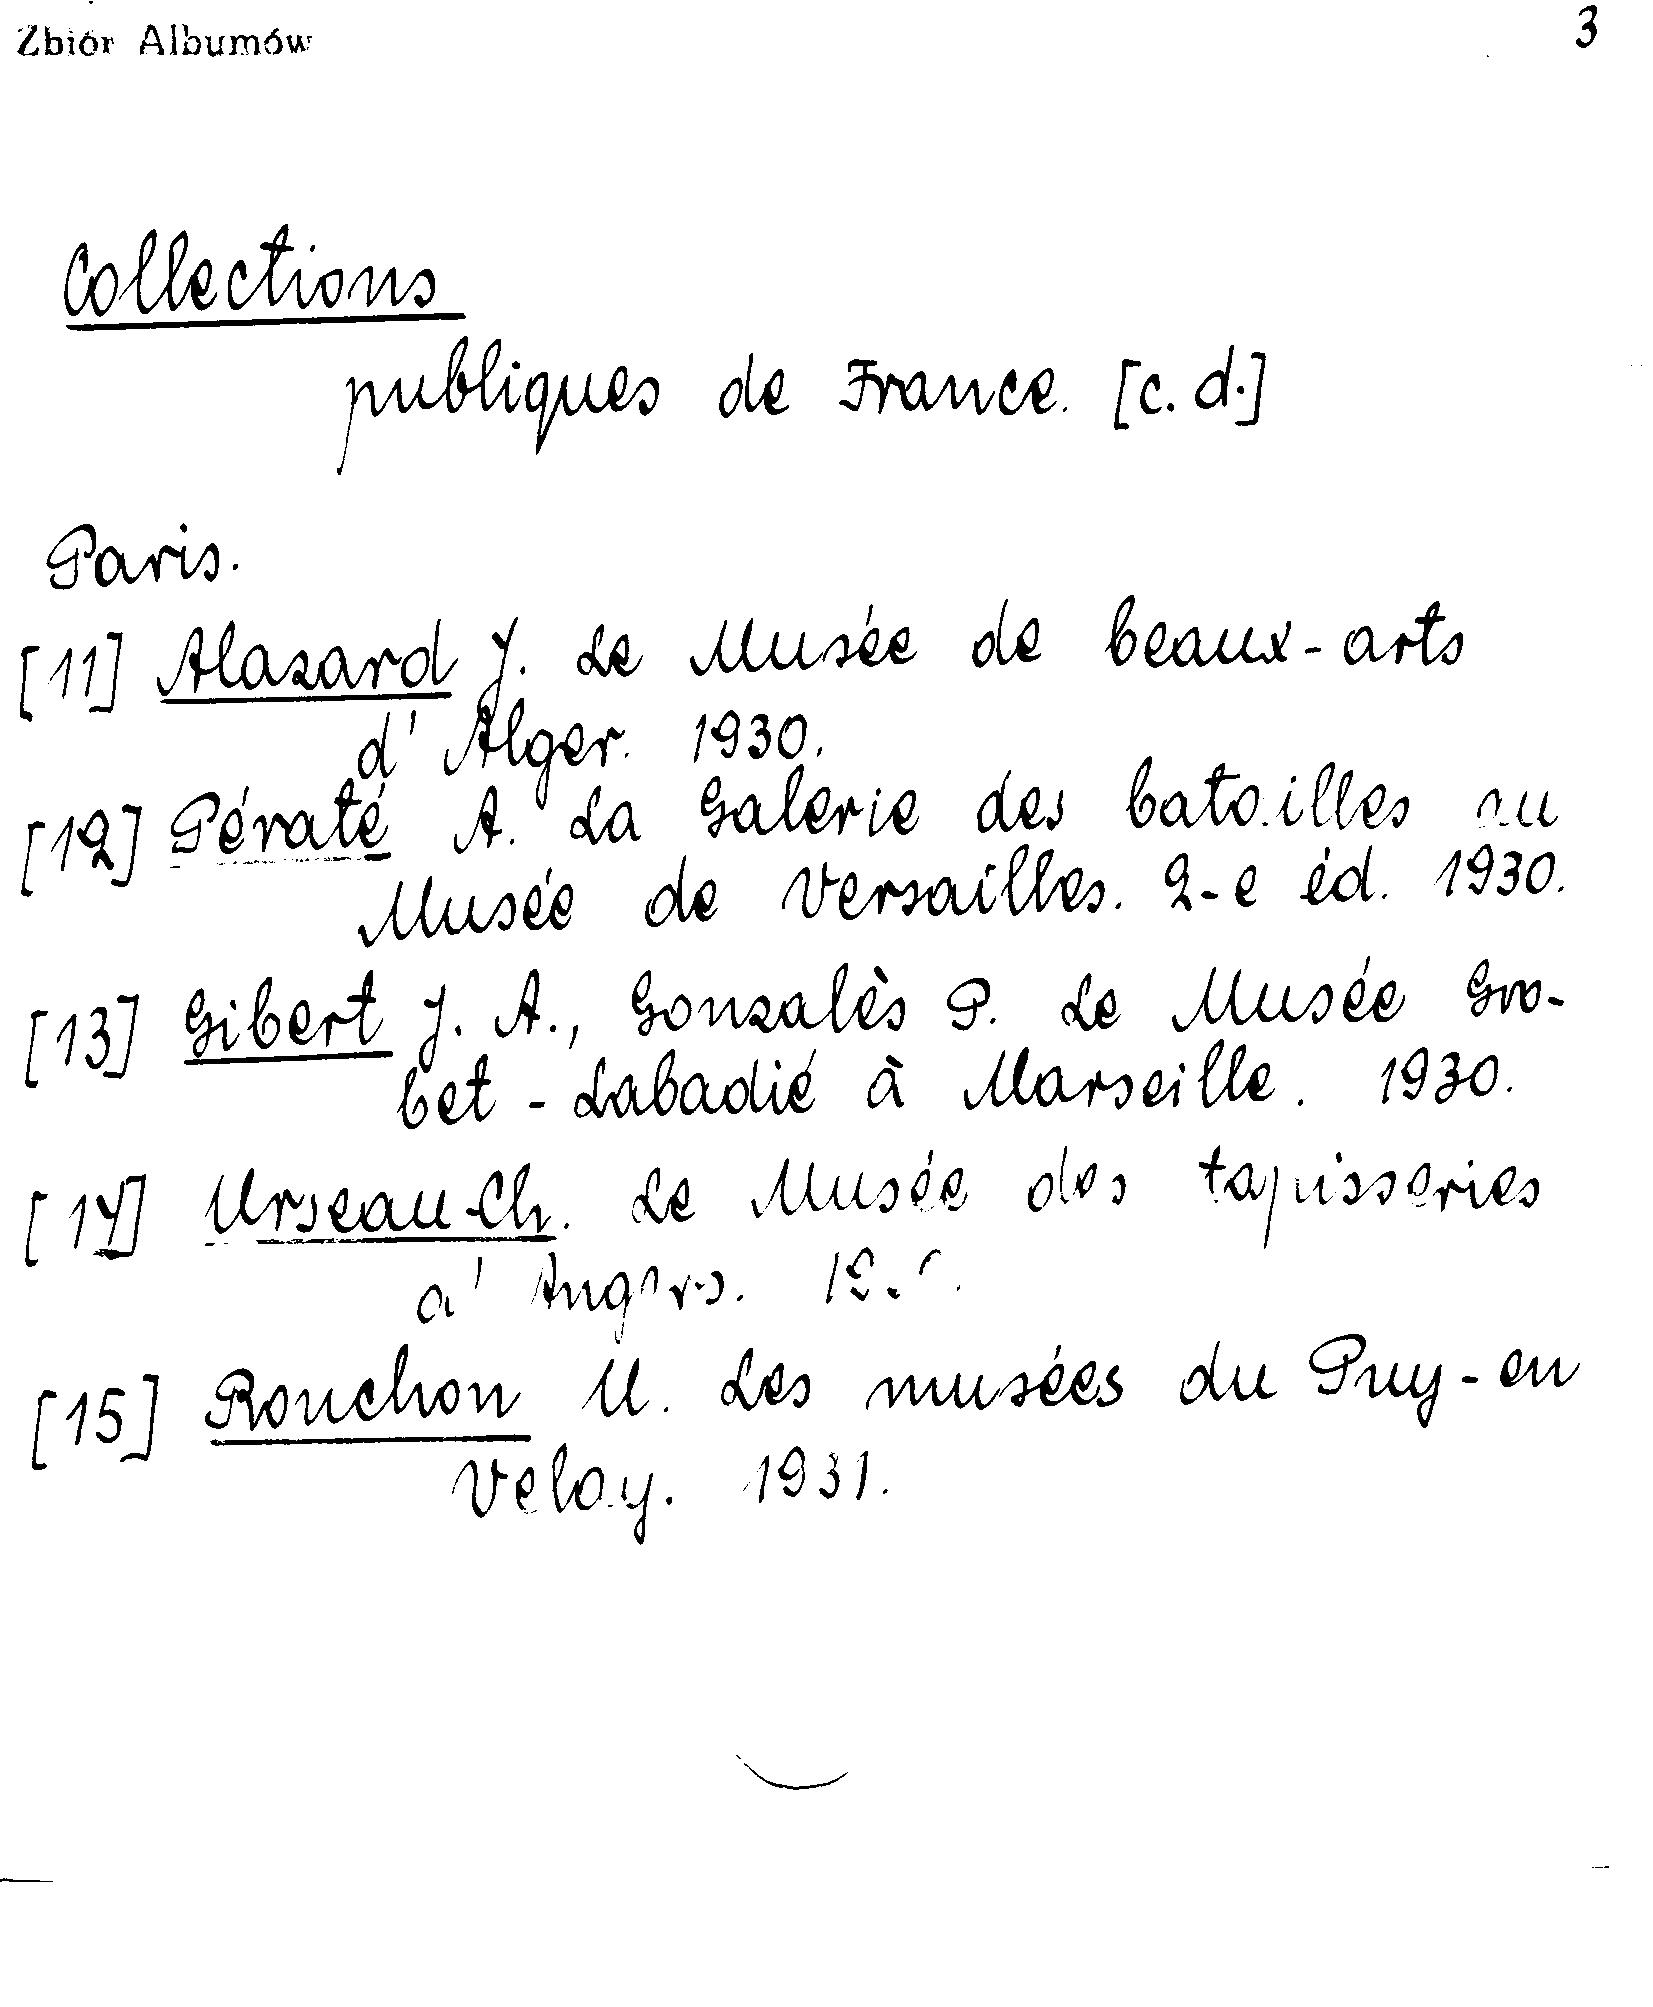 Zbiór Albumów
3
Collections
publiques de France. [c.d.]
Paris.
[11] Alazard J. Le Musée de beaux-arts
d'Alger. 1930.
[12] Pératé A. La Galerie des batailles au
Musée de Versailles. 2-e éd. 1930.
[13] Gibert J. A., Gonzalès P. Le Musée Gro-
bet - Labadié à Marseille. 1930.
[14] Urseau Ch. Le Musée des tapisseries
d'Angers.
[15] Rouchon U. Les musées du Puy-en
Velay. 1931.